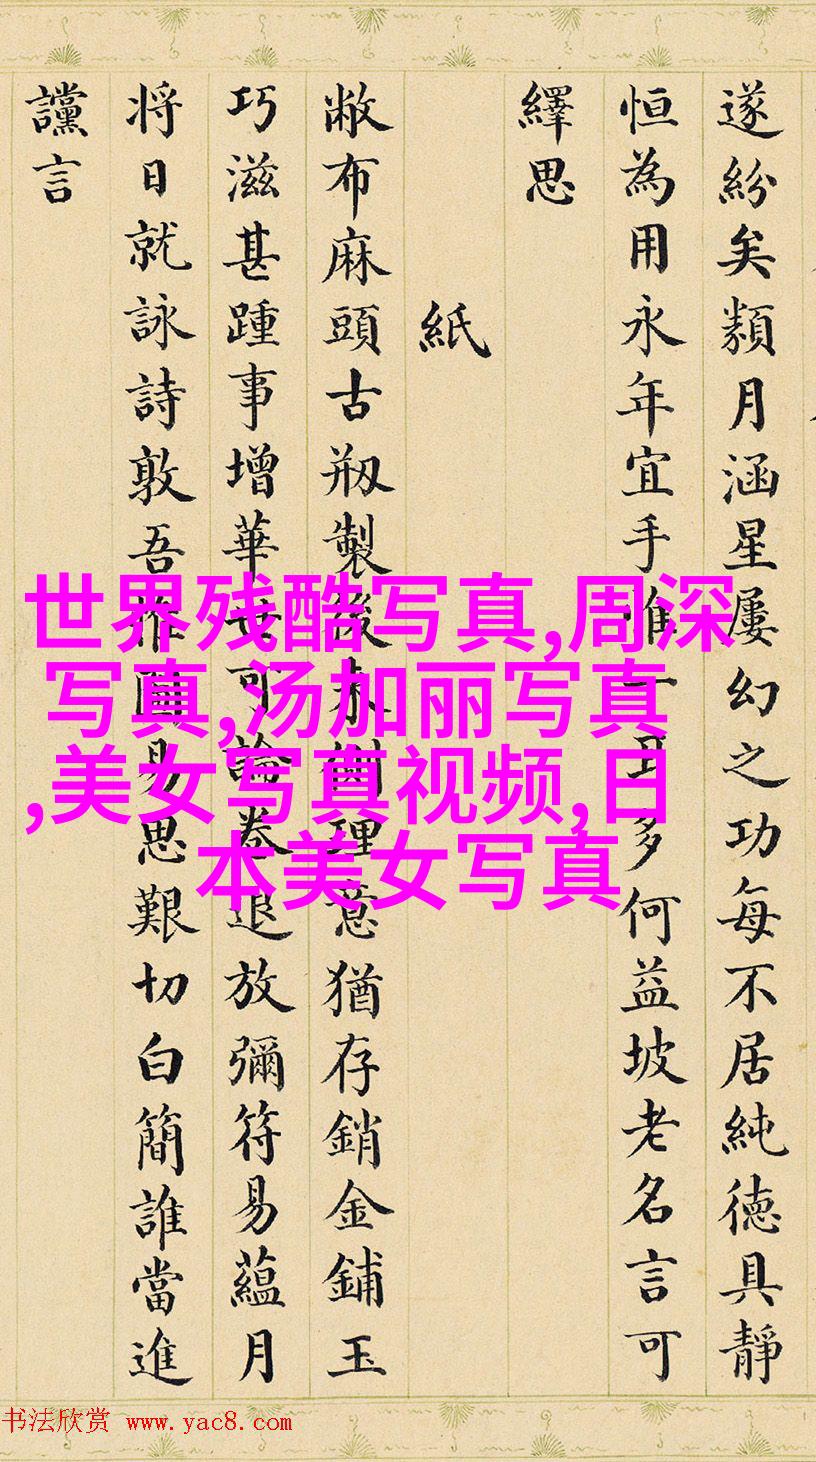 遂紛矣類月涵星屡幻之功每不居純德具靜
恒為用永年宜手惟一耳多何益坡老名言可
繹思
紙
敝布麻頭古剏製後来側理意猶存銷金鋪玉
巧滋甚踵事增華安可論卷退放彌符易蘊月
将日就詠詩敦吾作圖易思艱切白簡誰當進
讜言
世界残酷写真,周深
写真,汤加丽写真
,美女写真视频,日
本美女写真
书法欣赏 www.yac8.com